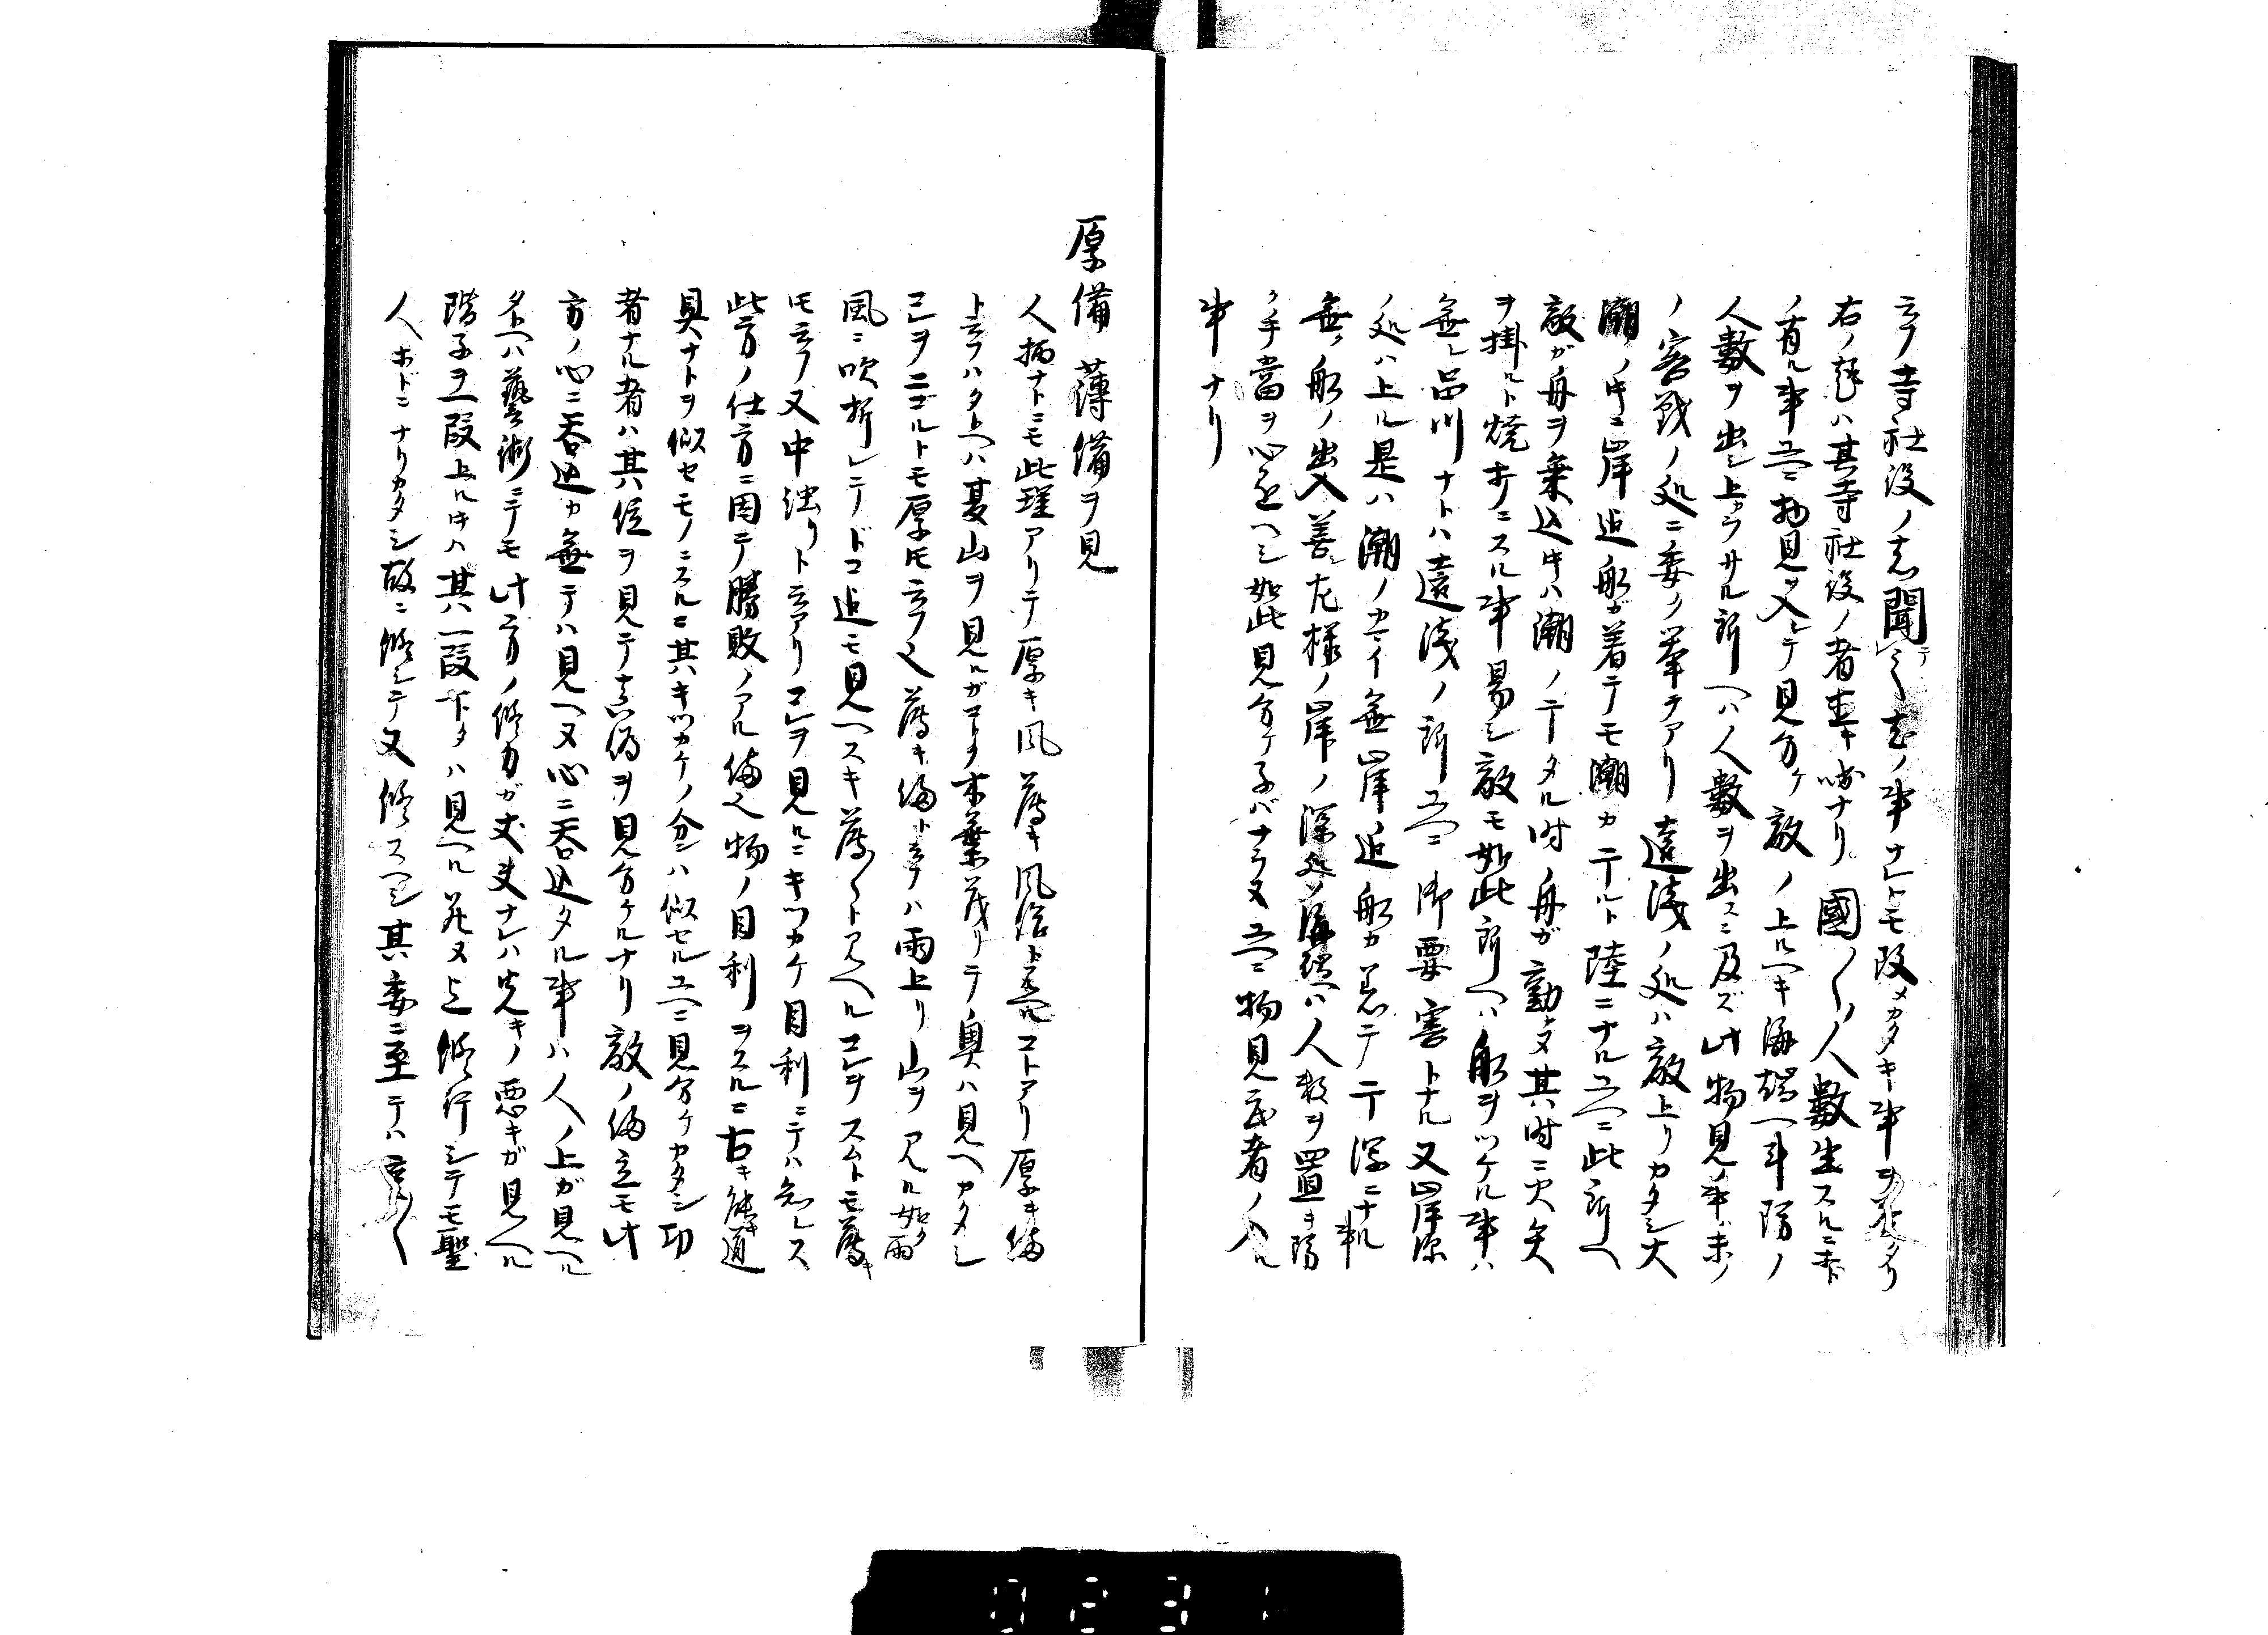 云フ寺社役ノ志聞テ〳〵志ノ事ナレトモ改メカタキ事ヲタリ
右ノ類ハ其寺社役ノ者ナリ國ノ〳〵人數生スルニホド
ノ有ル事故ニ物見ヲ入レテ見分ケ敵ノ上ルヘキ海端ヘ斗防ノ
人數ヲ出シ上ラサル所ヘハ人數ヲ出スニ及ズ此物見ノ事ハ末ノ
ノ客戰ノ処ニ委ク挙テアリ遠淺ノ処ハ敵上リカタシ大
潮ノ時ニ岸迄船ガ着テモ潮カ干ルト陸ニナル故ニ此所ヘ
敵ガ舟ヲ乗込時ハ潮ノ干タル時ノ舟ガ動カヌ其時ニ火矢
ヲ掛ルト焼打ニスル事易シ敵モ如此所ヘハ船ヲツケル事ハ
無シ品川ナトハ遠淺ノ所故ニ御要害トナル又岸深
ノ処ハ上ル是ハ潮ノカマイ無岸迄船カ着テ干深ニナル事
無ク船ノ出入善シ左様ノ岸ノ深処ノ海端ハ人数ヲ置キ防
ク手當ヲ心定ヘシ如此見分ケ子バナラヌ故ニ物見武者ノ入ル
事ナリ
厚備薄備ヲ見
人柄ナトニモ此理アリテ厚キ風薄キ風俗ト云ルコトアリ厚キ備
ト云フハタトヘハ夏山ヲ見ルガコトク木葉茂リテ奥ハ見ヘカタシ
コレヲニゴルトモ厚氏云フ又薄キ備ト云フハ雨上リ山ヲ見ル如ク雨
風ニ吹折レテドコ迄モ見ヘスキ薄クト見ヘルコレヲスムトモ薄キ
氏云フ又中濁リト云アリコレヲ見ルニキツカケ目利ニテハ知レス
此方ノ仕方ニ因テ勝敗ノアル備ヘ物ノ目利ヲスルニ古キ能道
具ナトヲ似セモノニスルニ其キツカケノ分ハ似セル故ニ見分ケカタシ功
者ナル者ハ其位ヲ見テ真偽ヲ見分ケルナリ敵ノ備立モ此
方ノ心ニ呑込カ無テハ見ヘヌ心ニ呑込タル事ハ人ノ上ガ見ヘル
タトヘハ藝術ニテモ此方ノ修力ガ丈夫ナレハ先キノ悪キガ見ヘル
階子ヲ一段上ル時ハ其一段下タハ見ヘル花ヌ上修行シテモ聖
人ホドニナリカタシ故ニ修シテ又修スヘシ其委ニ至テハ言〳〵